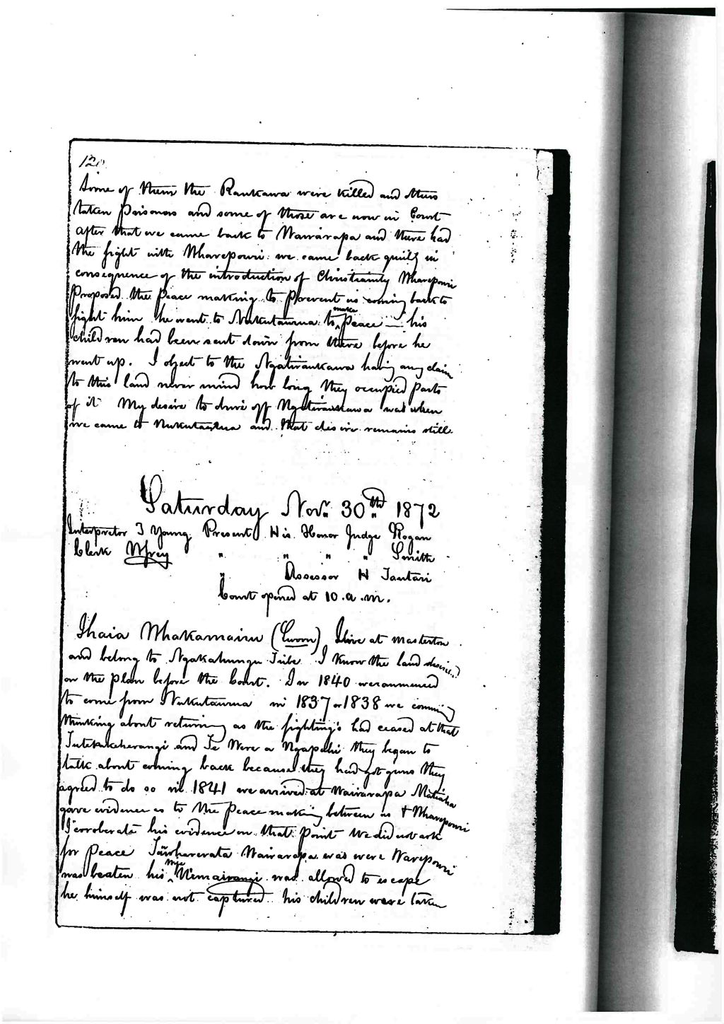 120
Some of them the Raukawa were killed and others
taken Poisoners and some of those are now in Court
after that we came back to Wairarapa and there had
the fight with Wharepouri we came back quietly in
consequence of the introduction of Christianity Wharepouri
Proposed the Peace making to prevent us coming back to
fight him he went to Nukutaurua to make Peace — his
children had been sent down from there before he
went up. I object to the Ngatiraukawa having any claim
to this land never mind how long they occupied Parts
of it My desire to drive off Ngatiraukawa was when
we came to Nukutaurua and that desire remains still
Saturday Novr. 30th 1872
Interpreter J Young Present His Honor Judge Rogan
Clerk " " " " Smith
" Assessor H Tautari
Court opened at 10. a.m.
Ihaia Whakamairu (Sworn) I live at Masterton
and belong to Ngakahungu Tribe I know the land
on the plan before the Court. In 1840 we commenced
to come from Nukutaurua in 1837 or 1838 we
thinking about returning as the fighting's had ceased at that
Tutekakcherangi and Te Ware a Ngapuhi they began to
talk about coming back because they had got guns they
agreed to do so in 1841 we arrived at Wairarapa
gave evidence as to the Peace making between us & Wharepouri
I corroberate his evidence on that Point We did not ask
for Peace Wairarapa was were Warepouri
was beaten his was allowed to escape
he himself was not captured his children were taken